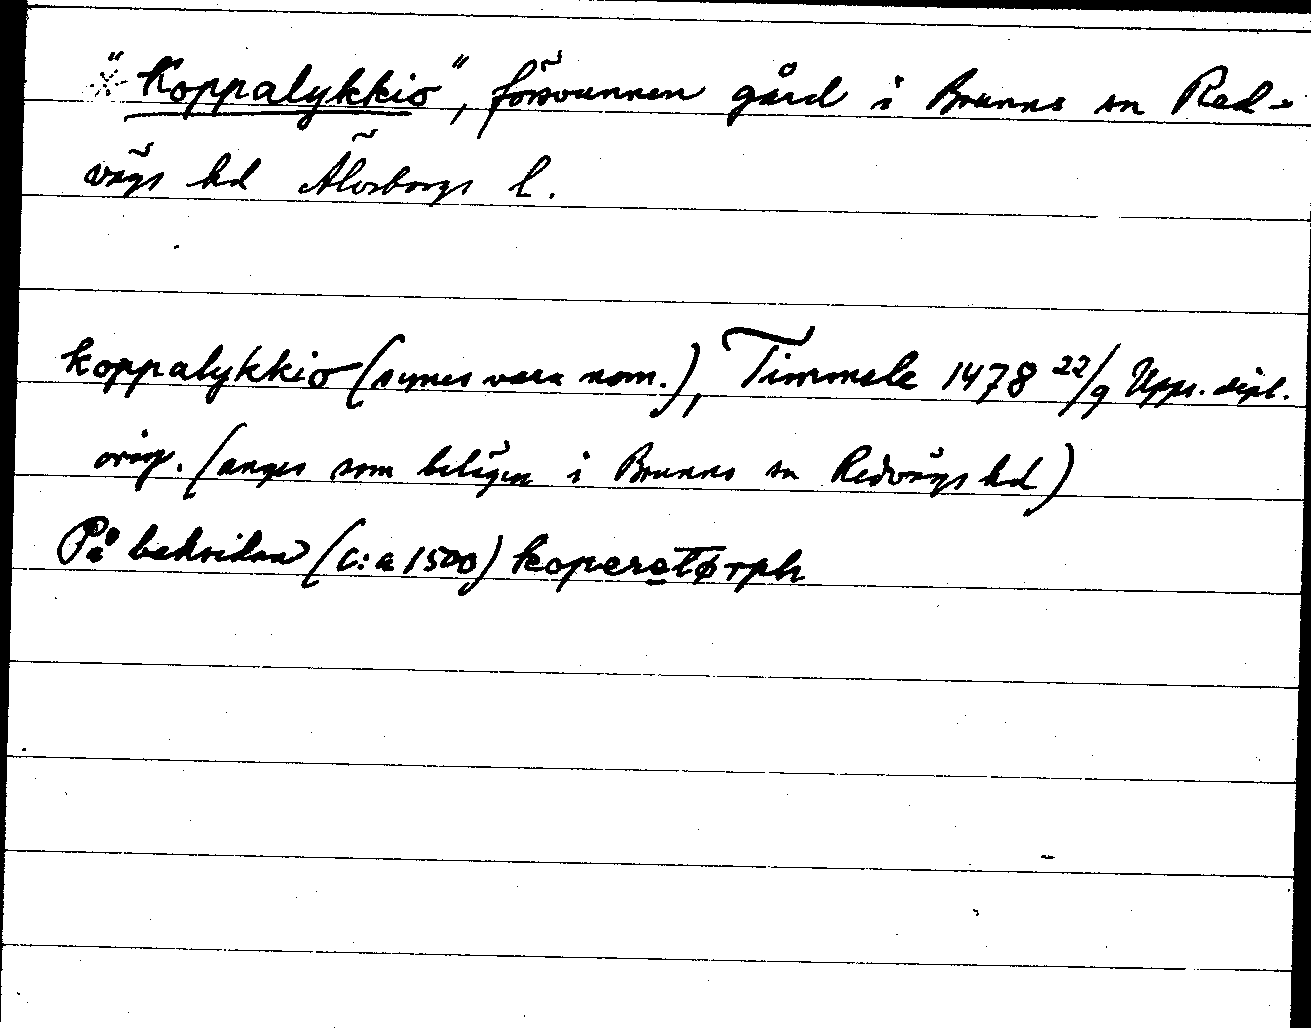 ※ "Koppalykkio", försvunnen gård i Brunns sn Red-
vägs hd Älvsborgs l.
koppalykkio (synes vara nom.), Timmele 1478 22/9 Upps. dipl.
orig. (anges som belägen i Brunns sn Redvägs hd)
På baksidan (c:a 1500) koperatørph